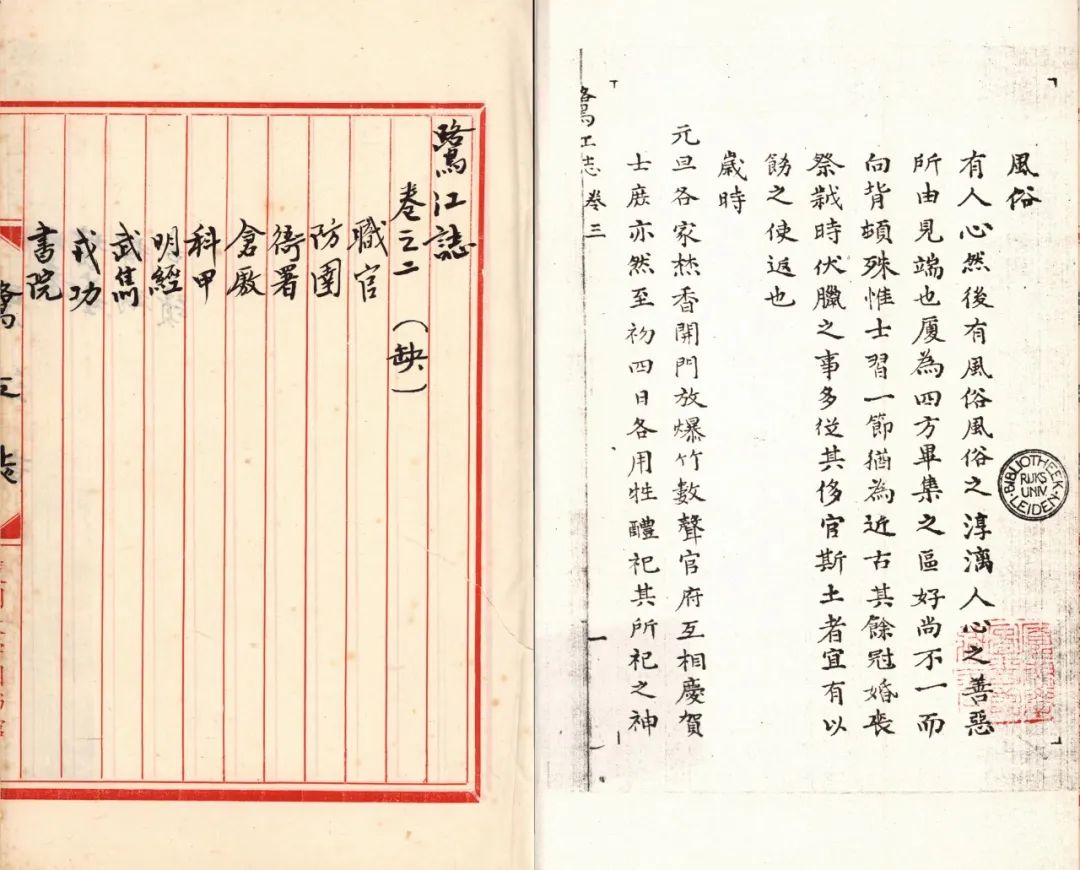 鷺江誌
卷之二 （缺）
職官
防圍
衙署
倉廒
科甲
明經
武雋
戎功
書院
風俗
有人心然後有風俗風俗之淳漓人心之善惡
所由見端也厦為四方畢集之區好尚不一而
向背頓殊惟士習一節猶為近古其餘冠婚喪
祭歲時伏臘之事多從其侈官斯土者宜有以
飭之使返也
歲時
元旦各家焚香開門放爆竹數聲官府互相慶賀
士庶亦然至初四日各用牲醴祀其所祀之神
鷺江志 卷三
BIBLIOTHEEK
RIJKS
UNIV.
LEIDEN